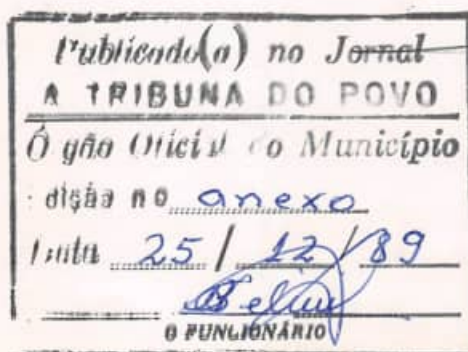 Publicado(a) no Jornal
A TRIBUNA DO POVO
Ó gão Oficial do Município
dição nº anexo
Data 25 / 12 / 89
O FUNCIONÁRIO